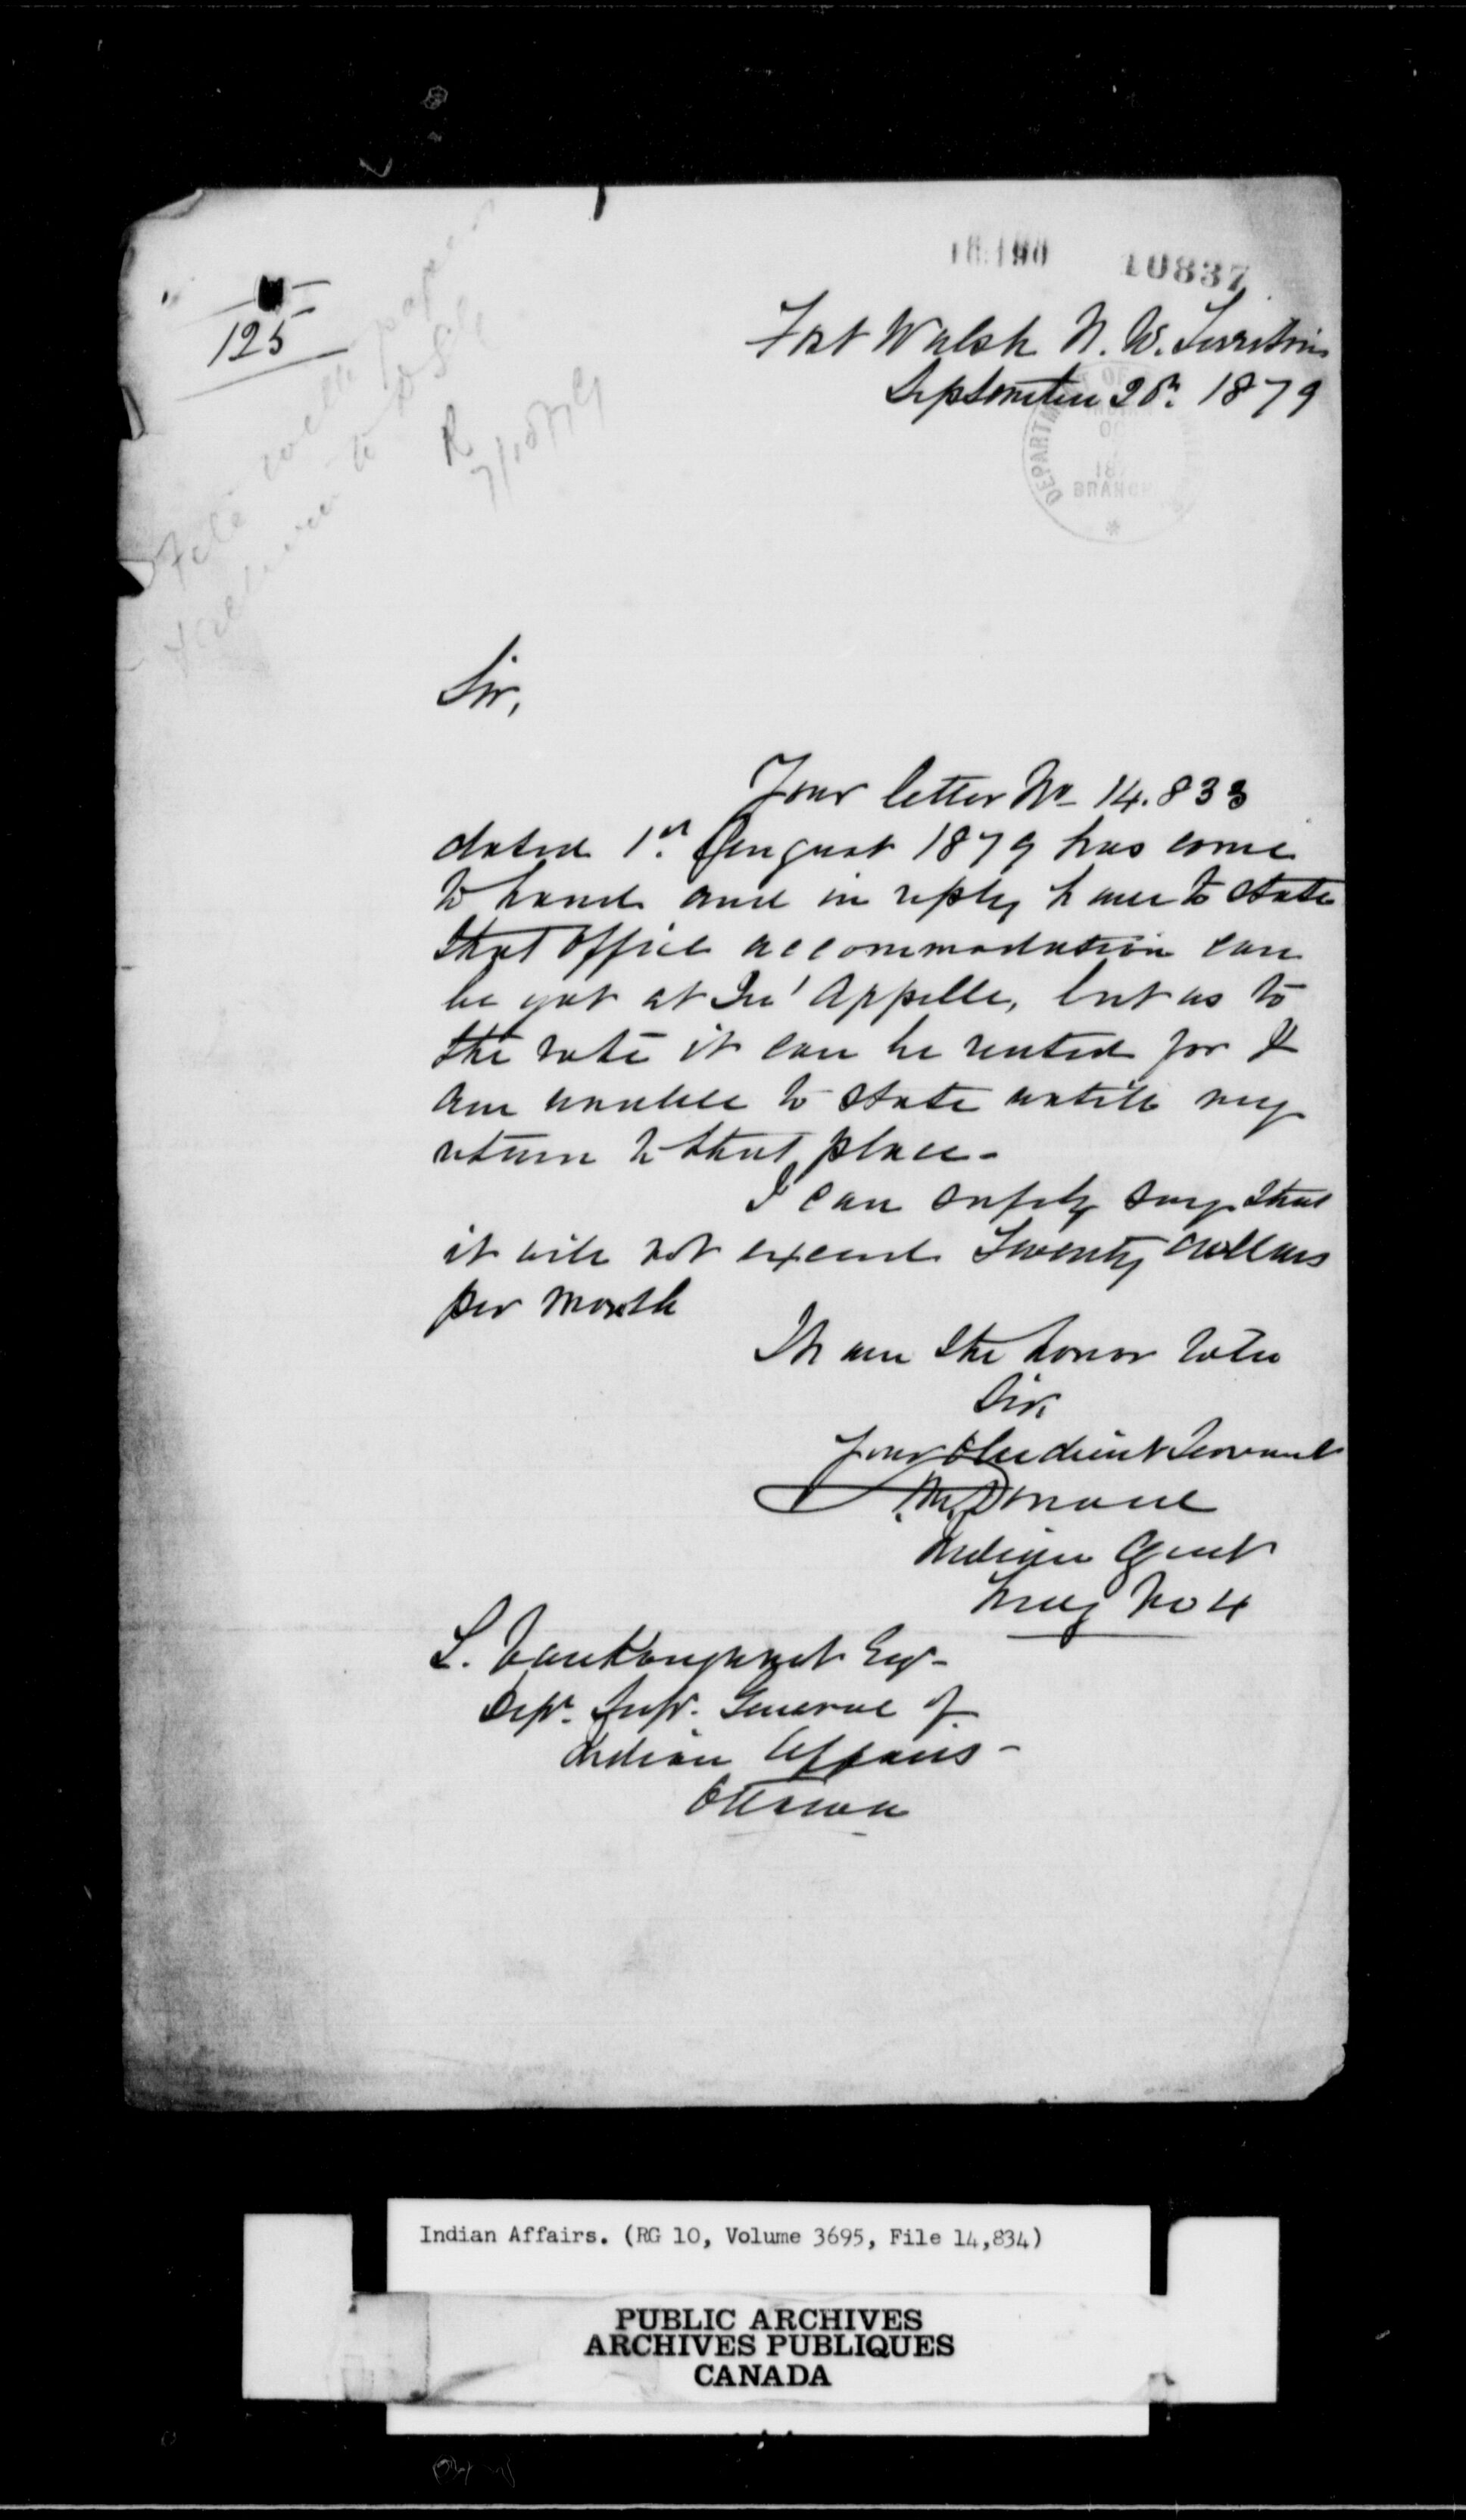 10837
125
Fort Walsh N. W. Territories
September 1879
DEPARTM OF
BRANCH
R
Sir,
Your letter No 14.833
dated 1st August 1879 has come
to hand and in reply have to state
that office accommodation can
be got at Qu'Appelle, but as to
the rate it can be rented for I
am unable to state untill my
return to that place -
I can safely say that
it will not exceed Twenty dollars
per month
I have the honor to be
Sir,
Your Obedient Servant
McDonald
Indian Agent
Treaty No 4
L. VanKoughnet Esqr -
Depy. Supt. General of
Indian Affairs -
Ottawa
Indian Affairs. (RG 10, Volume 3695, File 14,834)
PUBLIC ARCHIVES
ARCHIVES PUBLIQUES
CANADA